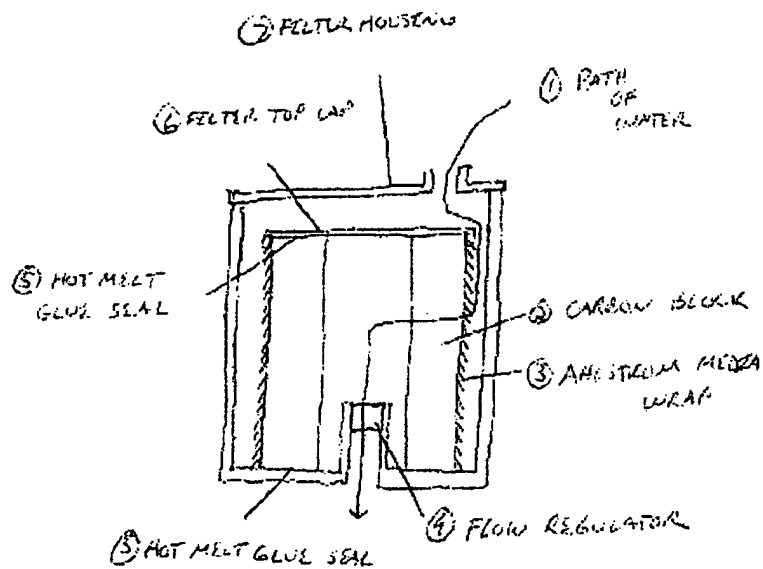 ⑦ FILTER HOUSING
① PATH
OF
WATER
⑥ FILTER TOP CAP
⑤ HOT MELT
GLUE SEAL
② CARBON BLOCK
③ AHLSTROM MEDIA
WRAP
④ FLOW REGULATOR
⑤ HOT MELT GLUE SEAL